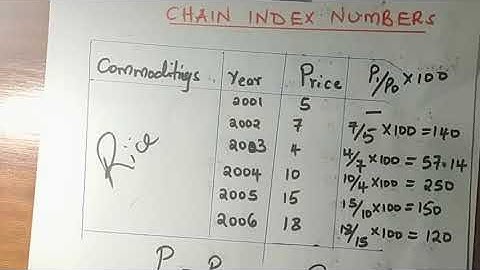 CHAIN INDEX NUMBERS
Commoditiys Year Price P₁/P₀ × 100
Rice
2001 5 —
2002 7 7/5 × 100 = 140
2003 4 4/7 × 100 = 57.14
2004 10 10/4 × 100 = 250
2005 15 15/10 × 100 = 150
2006 18 18/15 × 100 = 120